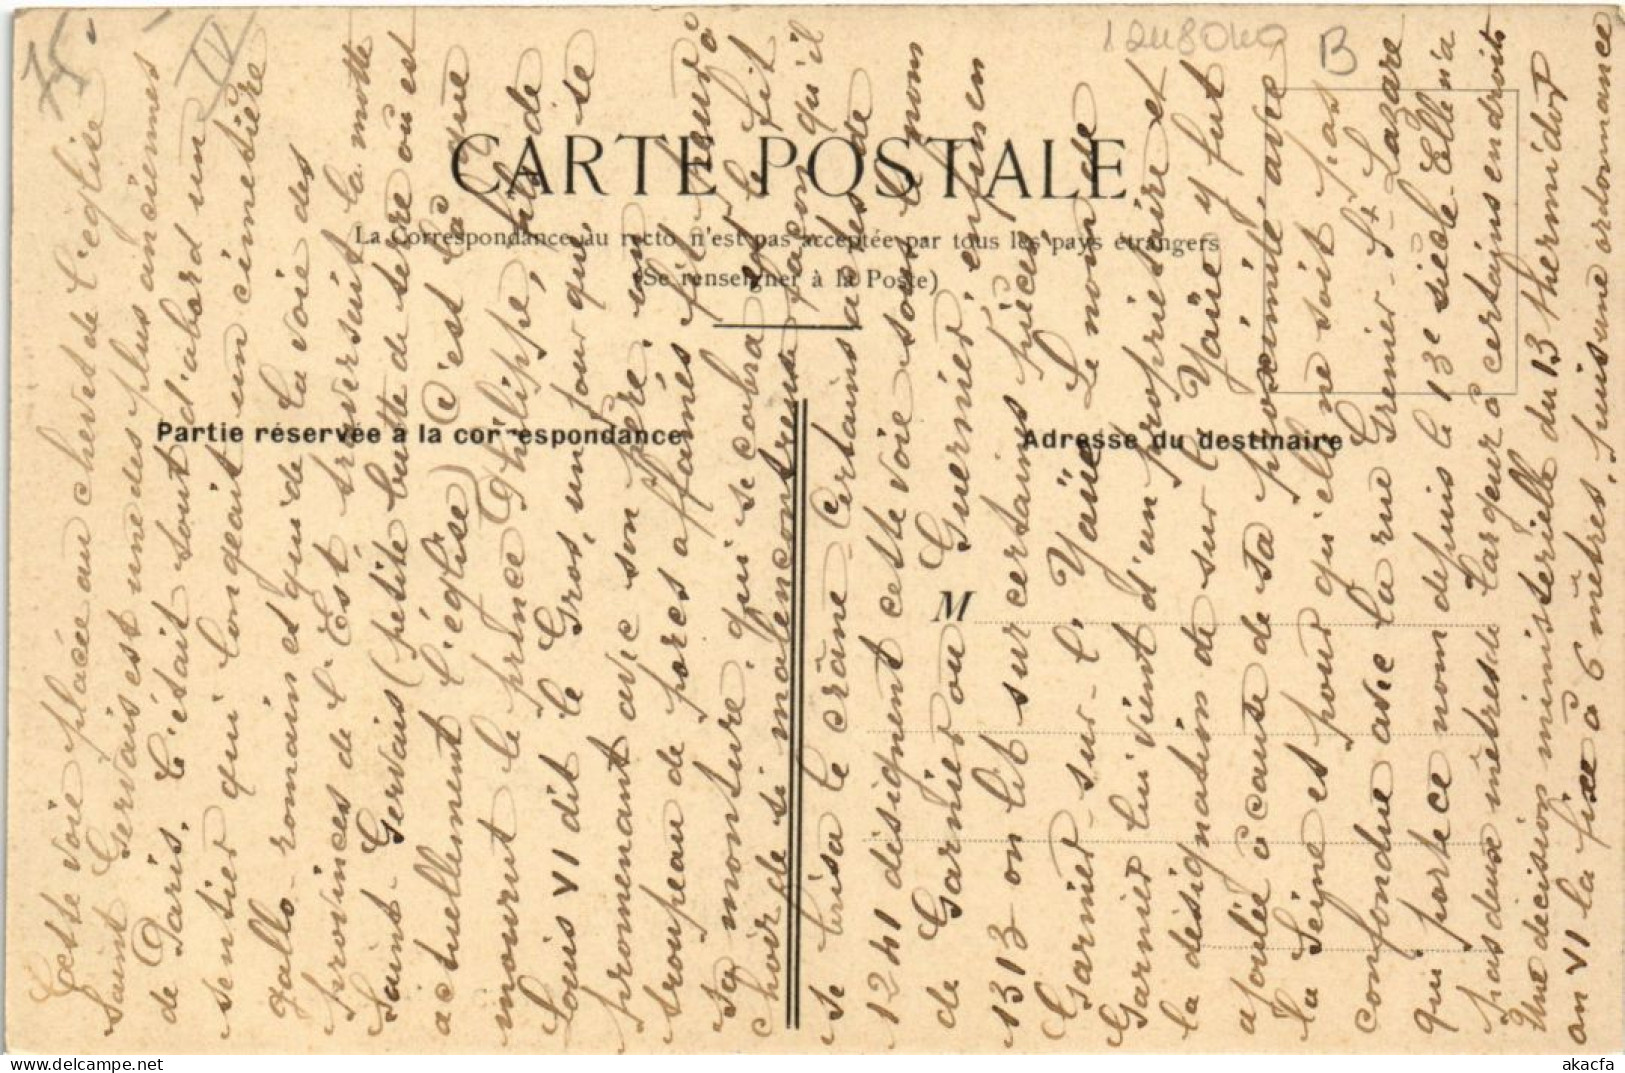 75.
IV
1248040
B
CARTE POSTALE
La correspondance au recto n'est pas acceptée par tous les pays étrangers
(Se renseigner à la Poste)
Partie réservée à la correspondance
Adresse du destinaire
M
Cette voie placée au chevet de l'église
Saint Gervais est une des plus anciennes
de Paris. C'était tout d'abord un
sentier qui longeait un cimetière
gallo-romain et qui de la voie des
provinces de l'Est, traversait la motte
Saint-Gervais (petite butte de terre où est
actuellement l'église). C'est là que
mourut le prince Philippe, fils de
Louis VI dit le Gros, un jour que, se
promenant avec son père, un
troupeau de porcs affamés fit peur à
sa monture, qui se cabra et le fit
choir si malencontreuse façon qu'il
se brisa le crâne. Certains actes de
1241 désignent cette voie sous le nom
de Garnier ou Guernier, enfin en
1313 on lit sur certaines pièces:
Garnier-sur-l'Yaüe. Le nom de
Garnier lui vient d'un propriétaire et
la désignation de sur l'Yaüe y fut
ajoutée à cause de sa proximité avec
la Seine et pour qu'elle ne soit pas
confondue avec la rue Grenier-St-Lazare
qui porte ce nom depuis le 13e siècle. Elle n'a
pas deux mètres de largeur à certains endroits
Une décision ministérielle du 13 thermidor
an VI la fixe à 6 mètres, puis une ordonnance
akacfa